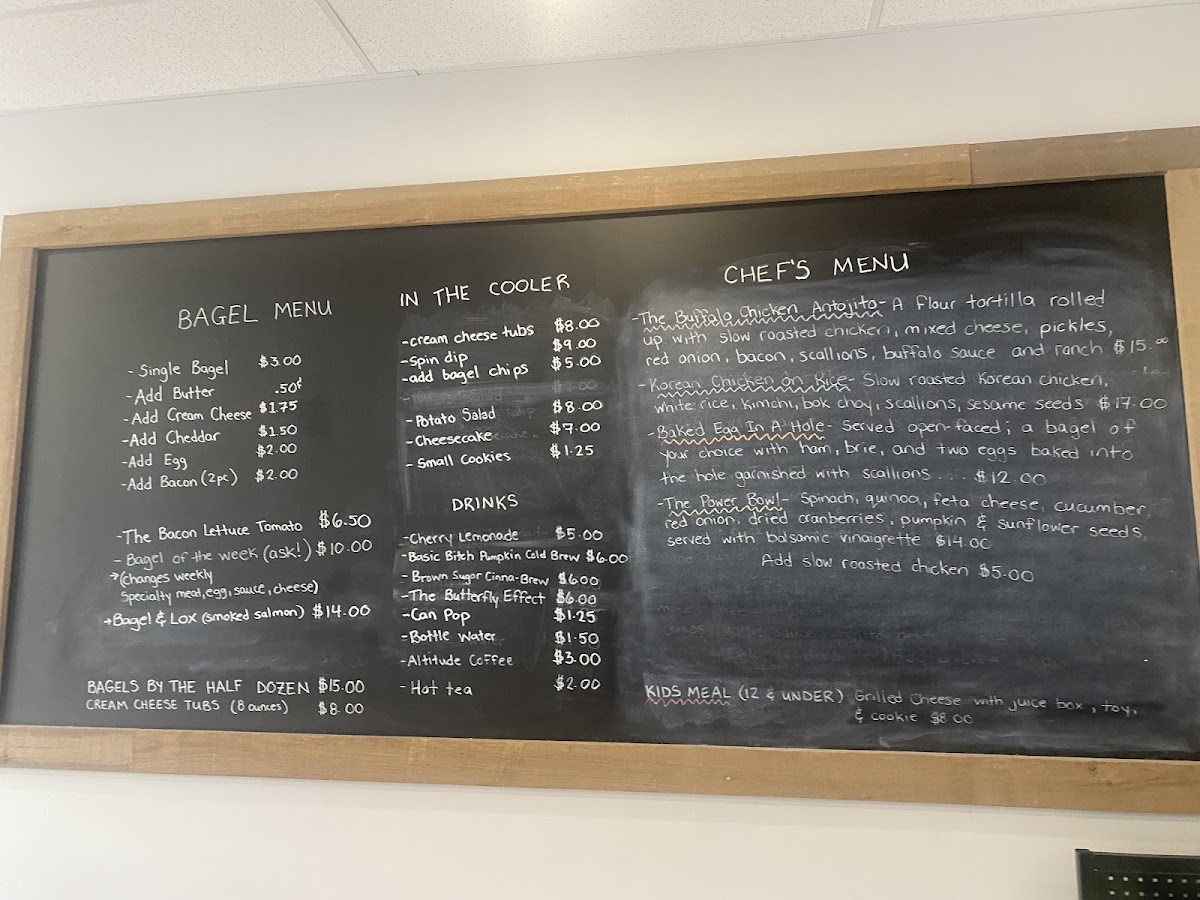 BAGEL MENU
- Single Bagel $3.00
- Add Butter .50¢
- Add Cream Cheese $1.75
- Add Cheddar $1.50
- Add Egg $2.00
- Add Bacon (2pc) $2.00
- The Bacon Lettuce Tomato $6.50
- Bagel of the week (ask!) $10.00
→ (changes weekly
Specialty meat, egg, sauce, cheese)
→ Bagel & Lox (smoked salmon) $14.00
BAGELS BY THE HALF DOZEN $15.00
CREAM CHEESE TUBS (8 ounces) $8.00
IN THE COOLER
- cream cheese tubs $8.00
- spin dip $9.00
- add bagel chips $5.00
- Potato Salad $8.00
- Cheesecake $7.00
- Small Cookies $1.25
DRINKS
- Cherry Lemonade $5.00
- Basic Bitch Pumpkin Cold Brew $6.00
- Brown Sugar Cinna-Brew $6.00
- The Butterfly Effect $6.00
- Can Pop $1.25
- Bottle Water $1.50
- Altitude Coffee $3.00
- Hot tea $2.00
CHEF'S MENU
- The Buffalo Chicken Antojita - A flour tortilla rolled
up with slow roasted chicken, mixed cheese, pickles,
red onion, bacon, scallions, buffalo sauce and ranch $15.00
- Korean Chicken on Rice - Slow roasted Korean chicken,
white rice, kimchi, bok choy, scallions, sesame seeds $17.00
- Baked Egg In A Hole - Served open-faced; a bagel of
your choice with ham, brie, and two eggs baked into
the hole garnished with scallions .... $12.00
- The Power Bowl - Spinach, quinoa, feta cheese, cucumber,
red onion, dried cranberries, pumpkin & sunflower seeds,
served with balsamic vinaigrette $14.00
Add slow roasted chicken $5.00
KIDS MEAL (12 & UNDER) Grilled Cheese with juice box, toy,
& cookie $8.00